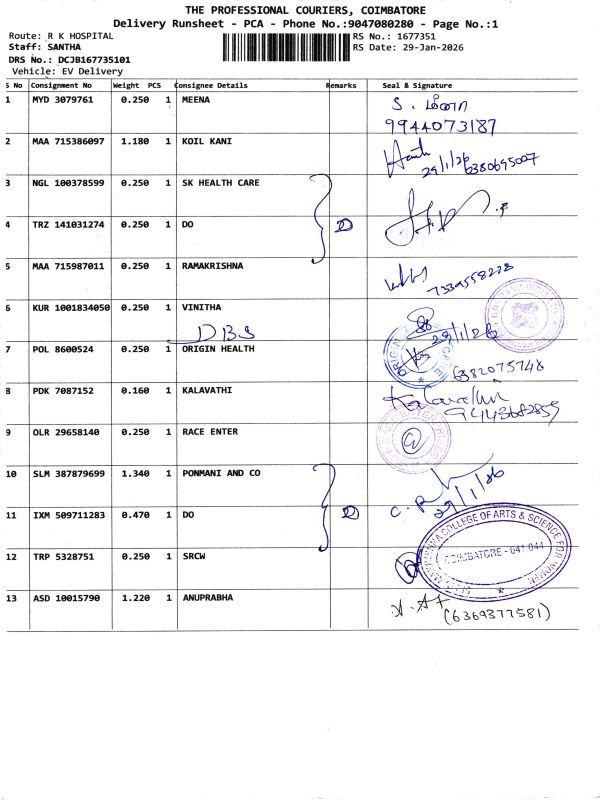 THE PROFESSIONAL COURIERS, COIMBATORE
Delivery Runsheet - PCA - Phone No.:9047080280 - Page No.:1
Route: R K HOSPITAL
RS No.: 1677351
Staff: SANTHA
RS Date: 29-Jan-2026
DRS No.: DCJB167735101
Vehicle: EV Delivery
S No Consignment No Weight PCS Consignee Details Remarks Seal & Signature
1 MYD 3079761 0.250 1 MEENA S. மீனா
9944073187
2 MAA 715386097 1.180 1 KOIL KANI 29/1/26 6380695007
3 NGL 100378599 0.250 1 SK HEALTH CARE
4 TRZ 141031274 0.250 1 DO 2
5 MAA 715987011 0.250 1 RAMAKRISHNA 7339558228
6 KUR 1001834050 0.250 1 VINITHA
DBS 29/1/26
7 POL 8600524 0.250 1 ORIGIN HEALTH ORIGIN
6382075748
8 PDK 7087152 0.160 1 KALAVATHI
9443682859
9 OLR 29658140 0.250 1 RACE ENTER
10 SLM 387879699 1.340 1 PONMANI AND CO 29/1/26
11 IXM 509711283 0.470 1 DO 2
12 TRP 5328751 0.250 1 SRCW COLLEGE OF ARTS & SCIENCE FOR WOMEN
COIMBATORE - 641 044
13 ASD 10015790 1.220 1 ANUPRABHA
(6369377581)